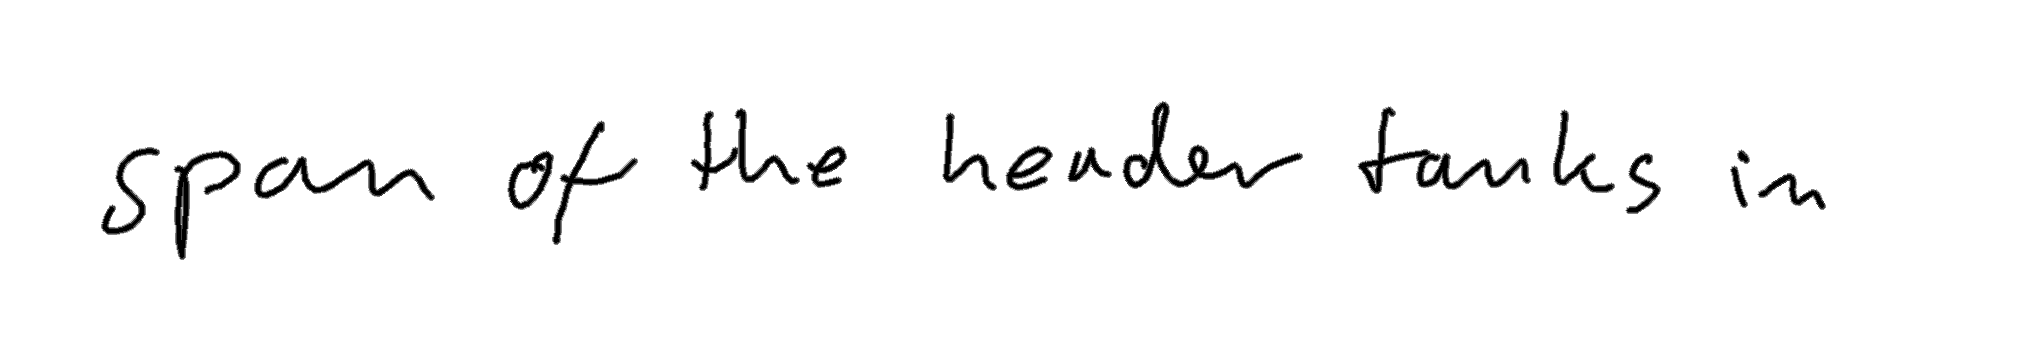 span of the header tanks in